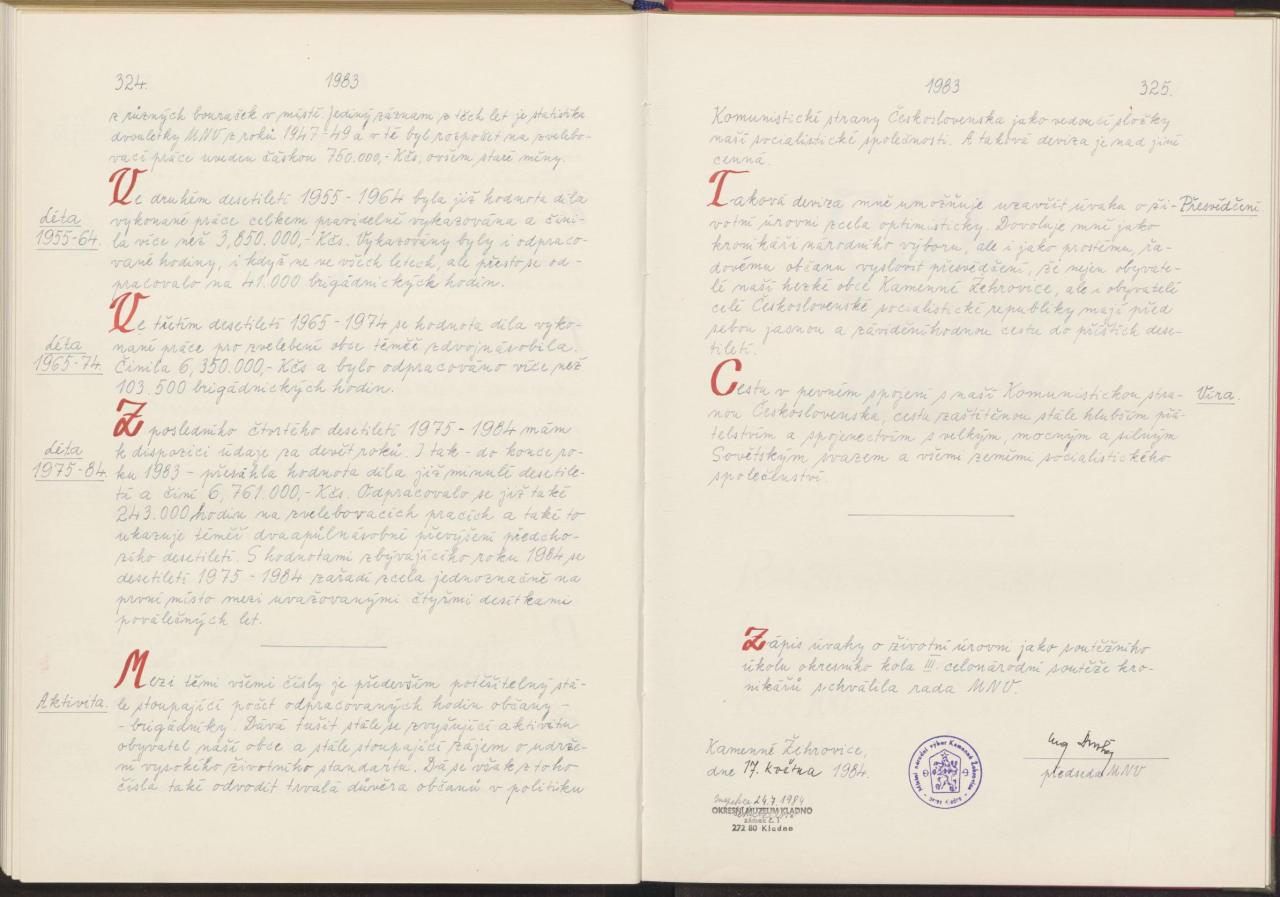 324.
1983
z různých bouraček v místě. Jediný záznam z těch let je statistika
dvouletky MNV z roků 1947-49 a v té byl rozpočet na zvelebo-
vací práce uveden částkou 750.000,- Kčs, ovšem staré měny.
Ve druhém desetiletí 1955 - 1964 byla již hodnota díla
léta
1955-64.
vykonané práce celkem pravidelně vykazována a čini-
la více než 3,850.000,- Kčs. Vykazovány byly i odpraco-
vané hodiny, i když ne ve všech letech, ale přesto se od-
pracovalo na 41.000 brigádnických hodin.
Ve třetím desetiletí 1965 - 1974 se hodnota díla vyko-
léta
1965-74.
nané práce pro zvelebení obce téměř zdvojnásobila.
Činila 6,350.000,- Kčs a bylo odpracováno více než
103.500 brigádnických hodin.
Z posledního čtvrtého desetiletí 1975 - 1984 mám
léta
1975-84.
k dispozici údaje za devět roků. I tak - do konce ro-
ku 1983 - přesáhla hodnota díla již minulé desetile-
tí a činí 6,761.000,- Kčs. Odpracovalo se již také
243.000 hodin na zvelebovacích pracích a také to
ukazuje téměř dvaapůlnásobné převýšení předcho-
zího desetiletí. S hodnotami zbývajícího roku 1984 se
desetiletí 1975 - 1984 zařadí zcela jednoznačně na
první místo mezi uvažovanými čtyřmi desítkami
poválečných let.
Mezi těmi všemi čísly je především potěšitelný stá-
Aktivita.
le stoupající počet odpracovaných hodin občany -
- brigádníky. Dává tušit stále se zvyšující aktivitu
obyvatel naší obce a stále stoupající zájem o udrže-
ní vysokého životního standartu. Dá se však z toho
čísla také odvodit trvalá důvěra občanů v politiku
1983
325.
Komunistické strany Československa jako vedoucí složky
naší socialistické společnosti. A taková devíza je nad jiné
cenná.
Taková devíza mně umožňuje uzavřít úvahu o ži-
Přesvědčení
votní úrovni zcela optimisticky. Dovoluje mně jako
kronikáři národního výboru, ale i jako prostému, řa-
dovému občanu vyslovit přesvědčení, že nejen obyvate-
lé naší hezké obce Kamenné Žehrovice, ale i obyvatelé
celé Československé socialistické republiky mají před
sebou jasnou a záviděníhodnou cestu do příštích dese-
tiletí.
Cestu v pevném spojení s naší Komunistickou stra-
Víra.
nou Československa, cestu zaštítěnou stále hlubším přá-
telstvím a spojenectvím s velkým, mocným a silným
Sovětským svazem a všemi zeměmi socialistického
společenství.
Zápis úvahy o životní úrovni jako soutěžního
úkolu okresního kola III. celonárodní soutěže kro-
nikářů schválila rada MNV.
Kamenné Žehrovice,
dne 17. května 1984.
Místní národní výbor Kamenné Žehrovice
Ing
předseda MNV
24.7.1984
OKRESNÍ MUZEUM KLADNO
zámek č. 1
272 80 Kladno